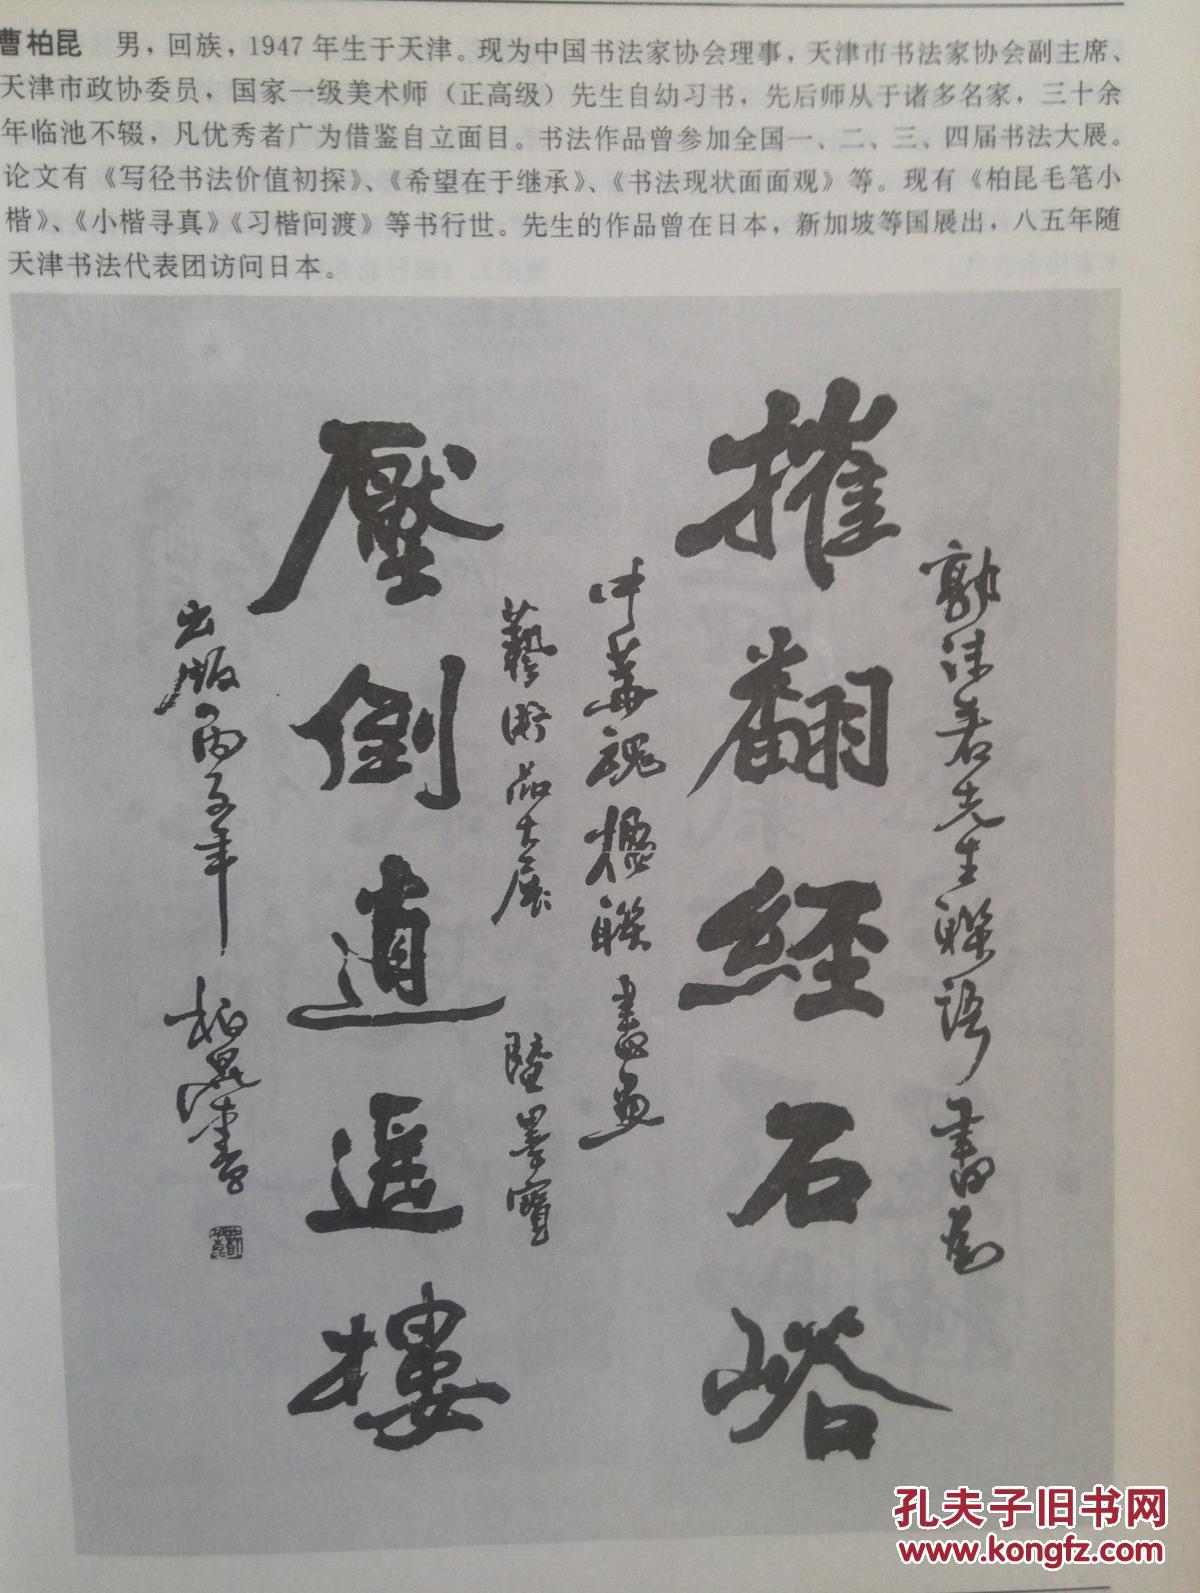 曹柏昆 男，回族，1947年生于天津。现为中国书法家协会理事，天津市书法家协会副主席、
天津市政协委员，国家一级美术师（正高级）先生自幼习书，先后师从于诸多名家，三十余
年临池不辍，凡优秀者广为借鉴自立面目。书法作品曾参加全国一、二、三、四届书法大展。
论文有《写径书法价值初探》、《希望在于继承》、《书法现状面面观》等。现有《柏昆毛笔小
楷》、《小楷寻真》《习楷问渡》等书行世。先生的作品曾在日本，新加坡等国展出，八五年随
天津书法代表团访问日本。
郭沫若先生联语 書为
摧翻経石峪
中華魂楹联書画
藝術品大展 墨寶
壓倒逍遥樓
出版丙子年 柏昆書
孔夫子旧书网
www.kongfz.com